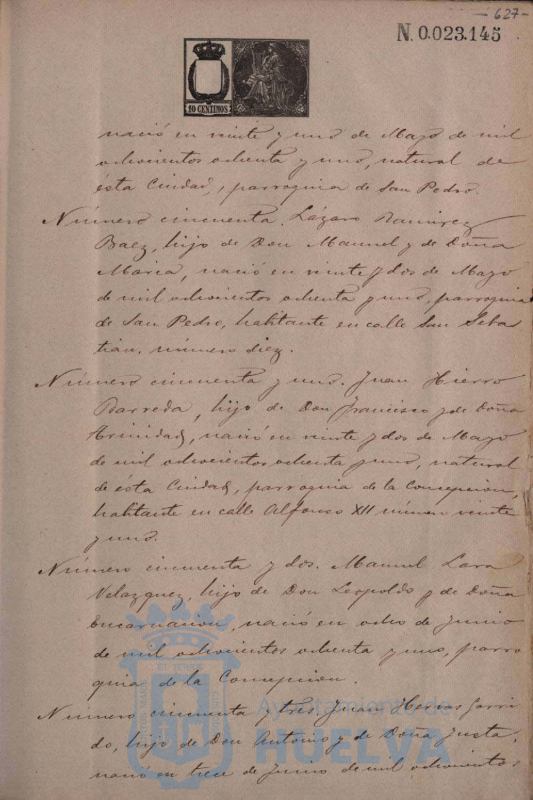 627
N. 0.023.145
10 CENTIMOS
nació en veinte y uno de Mayo de mil
ochocientos ochenta y uno, natural de
ésta Ciudad, parroquia de San Pedro.
Número cincuenta. Lázaro Ramirez
Baez, hijo de Don Manuel y de Doña
Maria, nació en veinte y dos de Mayo
de mil ochocientos ochenta y uno, parroquia
de San Pedro, habitante en calle San Sebas
tian, número diez.
Número cincuenta y uno. Juan Hierro
Barreda, hijo de Don Francisco y de Doña
Trinidad, nació en veinte y dos de Mayo
de mil ochocientos ochenta y uno, natural
de ésta Ciudad, parroquia de la Concepcion,
habitante en calle Alfonso XII número veinte
y uno.
Número cincuenta y dos. Manuel Lara
Velazquez, hijo de Don Leopoldo y de Doña
Encarnacion, nació en ocho de Junio
de mil ochocientos ochenta y uno, parro
quia de la Concepcion.
Número cincuenta y tres. Juan Hervas Garri
do, hijo de Don Antonio y de Doña Justa,
nació en trece de Junio de mil ochocientos
Ayuntamiento de
HUELVA